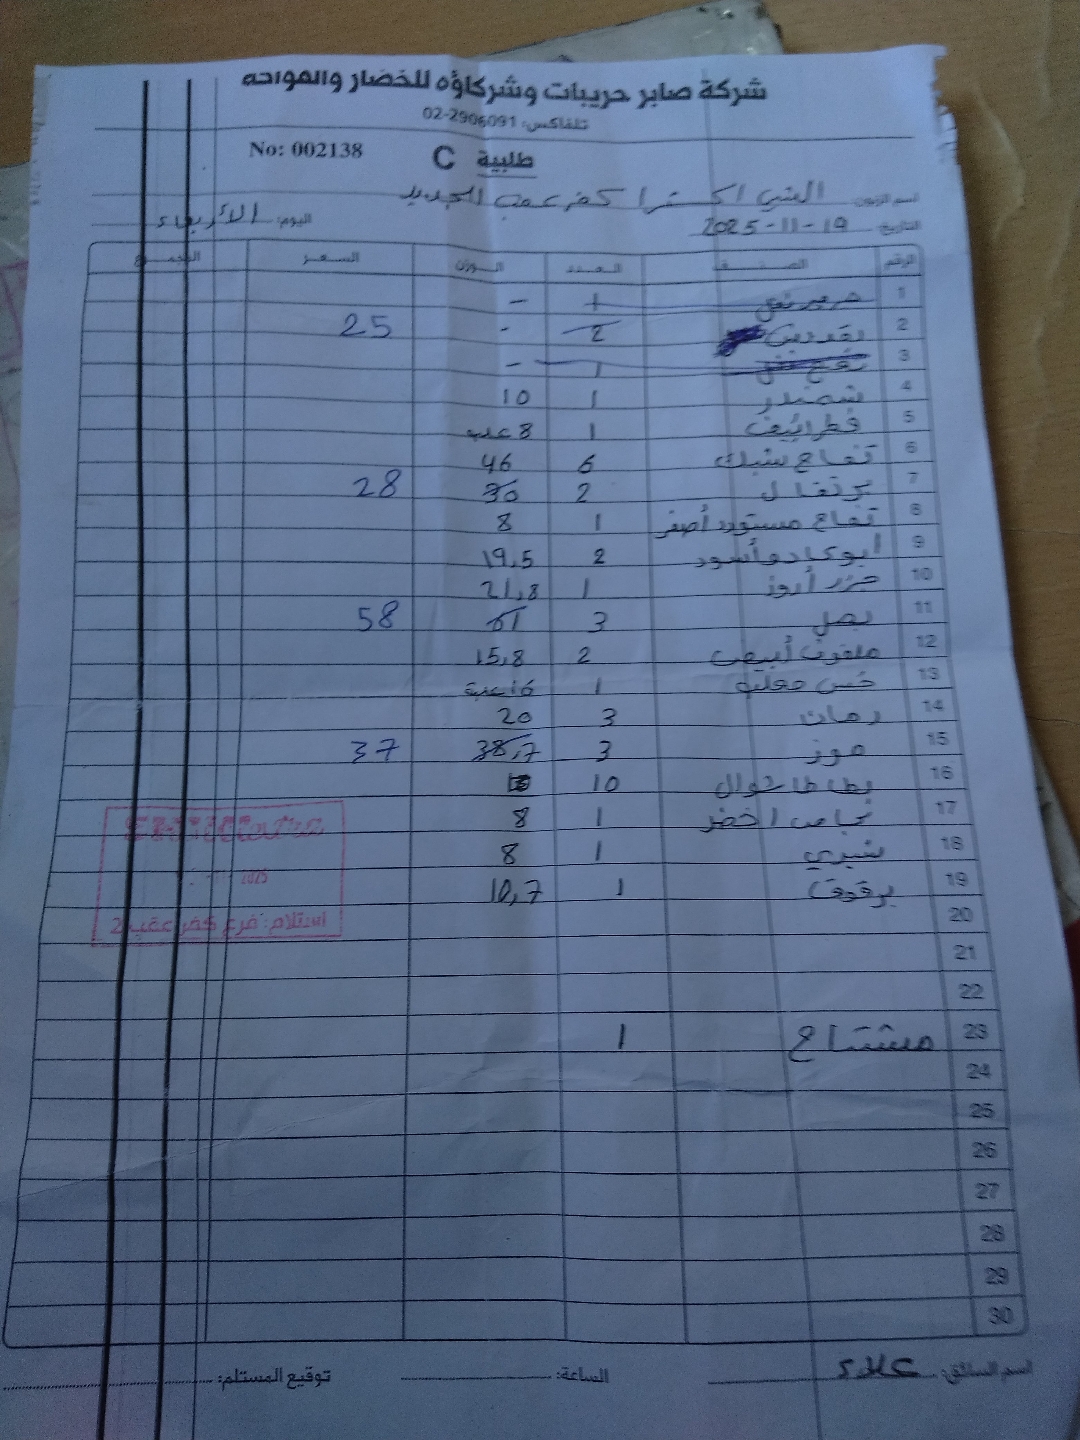 شركة صابر حريبات وشركاؤه للخضار والفواكه
تلفاكس: 02-2906091
No: 002138 طلبية C
اسم الزبون: الشني اكسترا كفر عقب الجديد
التاريخ: 19-11-2025 اليوم: الأربعاء
الرقم الصنف العدد الوزن السعر المجموع
1 1 -
2 يقدين 2 - 25
3 1 -
4 شمندر 1 10
5 فطرائيف 1 8 علب
6 تفاح شبك 6 46
7 برتقال 2 30 28
8 تفاح مستورد أصفر 1 8
9 أبوكادو أسود 2 19,5
10 جزر أروز 1 21,8
11 بصل 3 61 58
12 ملفوف أبيض 2 15,8
13 خس معلب 1 16 علبة
14 رمان 3 20
15 موز 3 38,7 37
16 بطاطا خوال 10
17 نجاص اخضر 1 8
18 شيري 1 8
19 برقوق 1 10,7
20
21
22
23 مشتاح 1
24
25
26
27
28
29
30
2025
استلام: فرع كفر عقب 2
اسم السائق: علاء الساعة: توقيع المستلم: